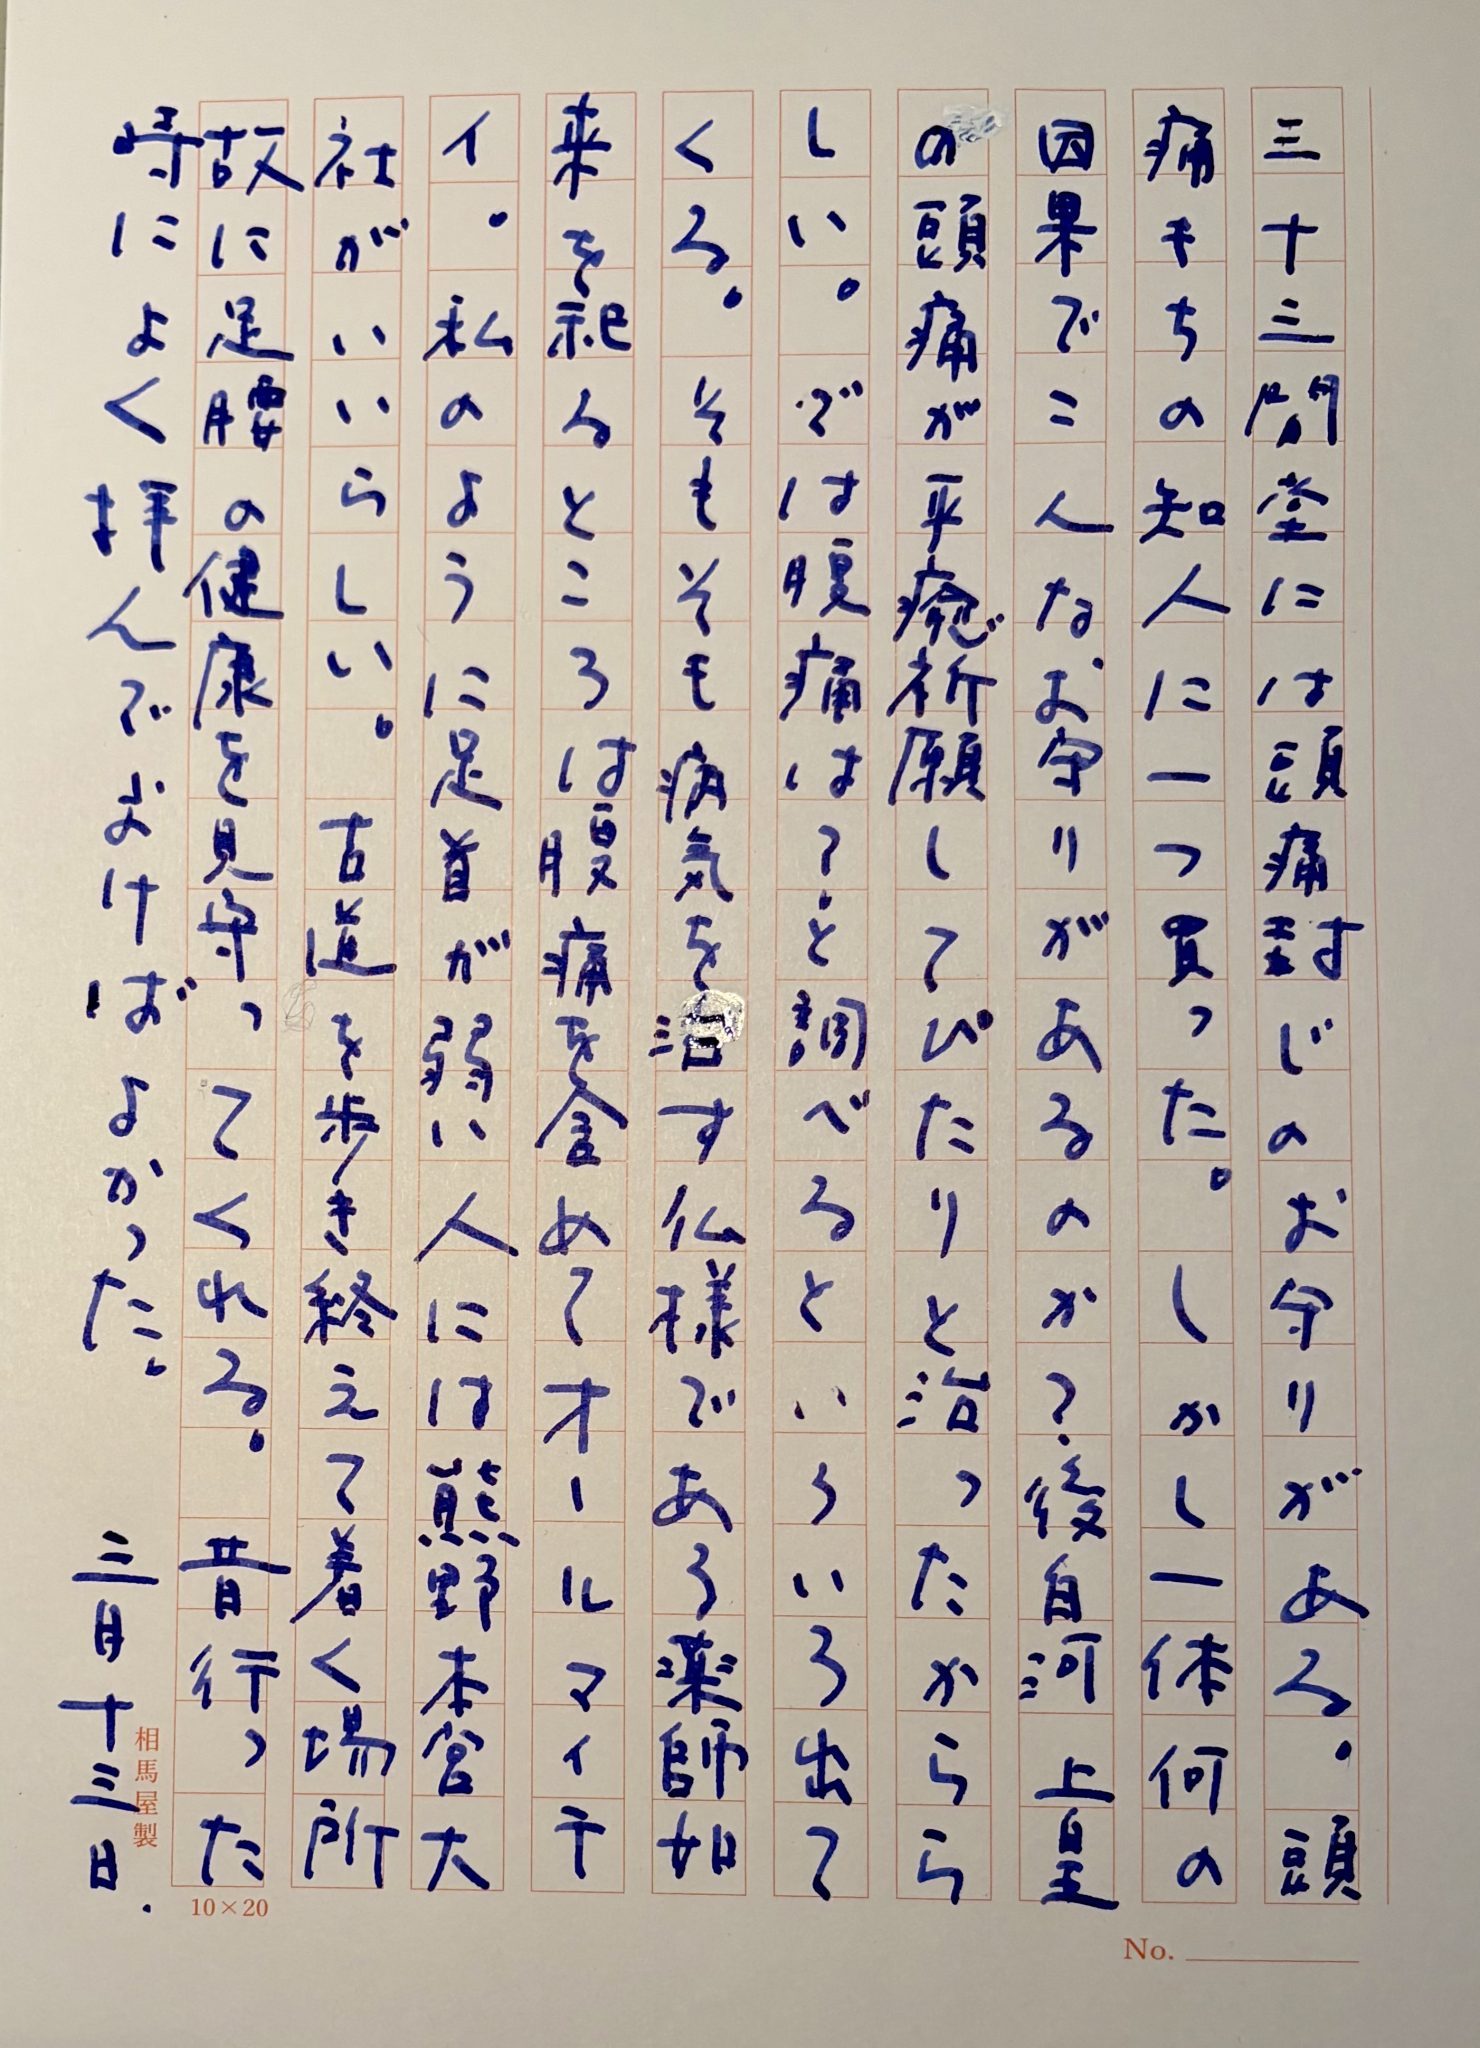 三十三間堂には頭痛封じのお守りがある。頭
痛もちの知人に一つ買った。しかし一体何の
因果でこんなお守りがあるのか?後白河上皇
の頭痛が平癒祈願してぴたりと治ったからら
しい。では腹痛は?と調べるといろいろ出て
くる。そもそも病気を治す仏様であろ薬師如
来を祀るところは腹痛を含めてオールマイテ
イ。私のように足首が弱い人には熊野本宮大
社がいいらしい。古道を歩き終えて着く場所
故に足腰の健康を見守ってくれる。昔行った
時によく拝んでおけばよかった。
三月十三日.
相馬屋製
10×20
No.